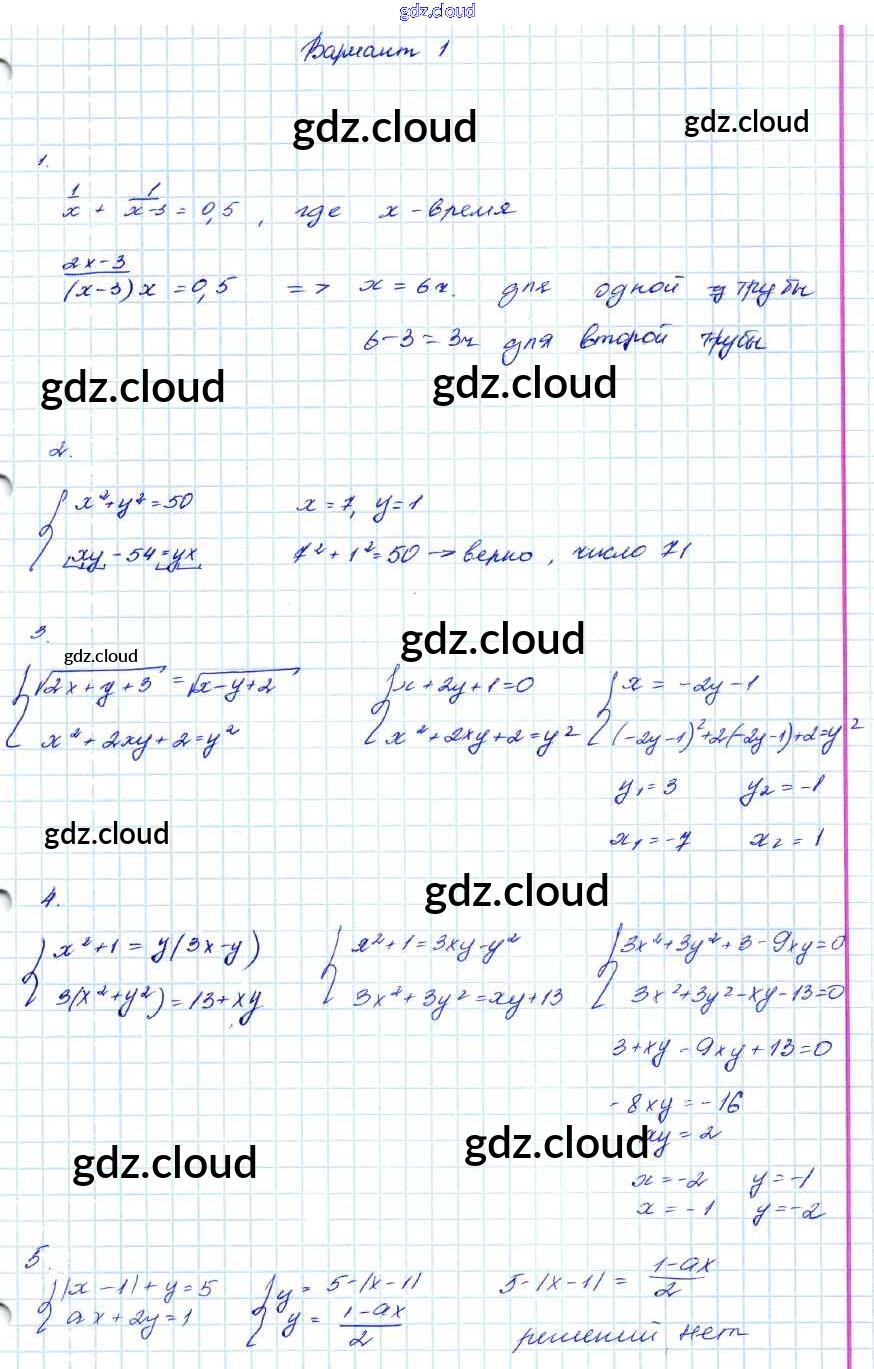 gdz.cloud
Вариант 1
gdz.cloud gdz.cloud
1.
1/x + 1/(x-3) = 0,5, где x - время
(2x-3)/((x-3)x) = 0,5 => x = 6ч. для одной трубы
6-3 = 3ч для второй трубы
gdz.cloud gdz.cloud
2.
{ x²+y²=50 x=7, y=1
xy - 54 = yx 7²+1²=50 → верно, число 71
3. gdz.cloud
gdz.cloud
{ √(2x+y+3) = √(x-y+2) { x+2y+1=0 { x = -2y-1
x²+2xy+2=y² x²+2xy+2=y² (-2y-1)²+2(-2y-1)+2=y²
y₁=3 y₂=-1
gdz.cloud
x₁=-7 x₂=1
4. gdz.cloud
{ x²+1 = y(3x-y) { x²+1=3xy-y² { 3x²+3y²+3-9xy=0
3(x²+y²)=13+xy 3x²+3y²=xy+13 3x²+3y²-xy-13=0
3+xy-9xy+13=0
-8xy=-16
gdz.cloud gdz.cloud
xy=2
x=-2 y=-1
x=-1 y=-2
5.
{ |x-1|+y=5 { y=5-|x-1| 5-|x-1| = (1-ax)/2
ax+2y=1 y = (1-ax)/2
решений нет